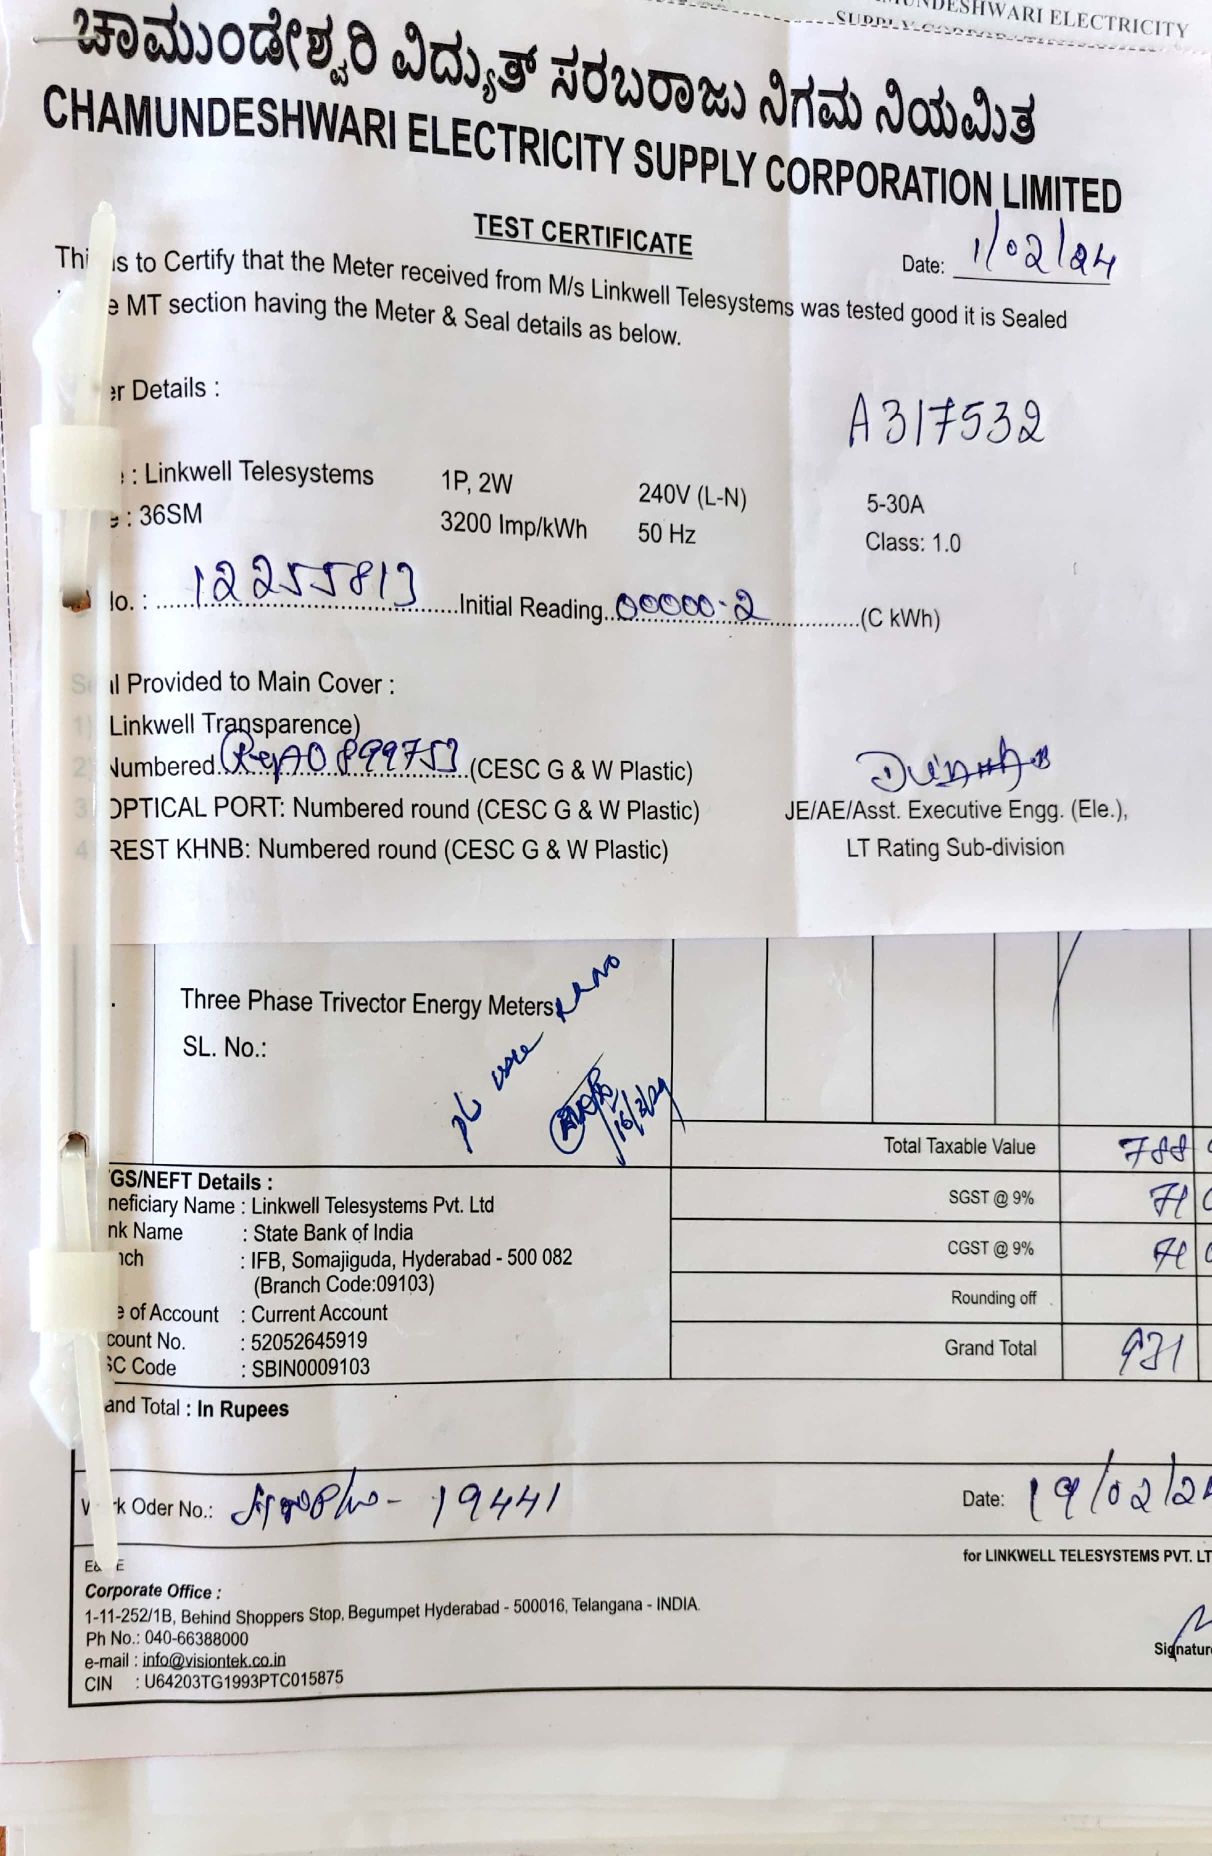 MUNDESHWARI ELECTRICITY
ಚಾಮುಂಡೇಶ್ವರಿ ವಿದ್ಯುತ್ ಸರಬರಾಜು ನಿಗಮ ನಿಯಮಿತ
CHAMUNDESHWARI ELECTRICITY SUPPLY CORPORATION LIMITED
TEST CERTIFICATE
Date: 1/02/24
Thi is to Certify that the Meter received from M/s Linkwell Telesystems was tested good it is Sealed
e MT section having the Meter & Seal details as below.
er Details :
A317532
: Linkwell Telesystems 1P, 2W 240V (L-N) 5-30A
: 36SM 3200 Imp/kWh 50 Hz Class: 1.0
lo. : 12255813 Initial Reading 00000.2 (C kWh)
Seal Provided to Main Cover :
1) Linkwell Transparence)
2) Numbered 0899753 (CESC G & W Plastic)
3) OPTICAL PORT: Numbered round (CESC G & W Plastic)
4) REST KHNB: Numbered round (CESC G & W Plastic)
JE/AE/Asst. Executive Engg. (Ele.),
LT Rating Sub-division
Three Phase Trivector Energy Meters
SL. No.:
Total Taxable Value 788
GS/NEFT Details :
neficiary Name : Linkwell Telesystems Pvt. Ltd
SGST @ 9% 71
nk Name : State Bank of India
nch : IFB, Somajiguda, Hyderabad - 500 082
CGST @ 9% 71
(Branch Code:09103)
e of Account : Current Account
Rounding off
count No. : 52052645919
Grand Total 931
SC Code : SBIN0009103
and Total : In Rupees
Work Oder No.: - 19441
Date: 19/02/24
for LINKWELL TELESYSTEMS PVT. LT
E& E
Corporate Office :
1-11-252/1B, Behind Shoppers Stop, Begumpet Hyderabad - 500016, Telangana - INDIA.
Ph No.: 040-66388000
e-mail : info@visiontek.co.in
CIN : U64203TG1993PTC015875
Signature